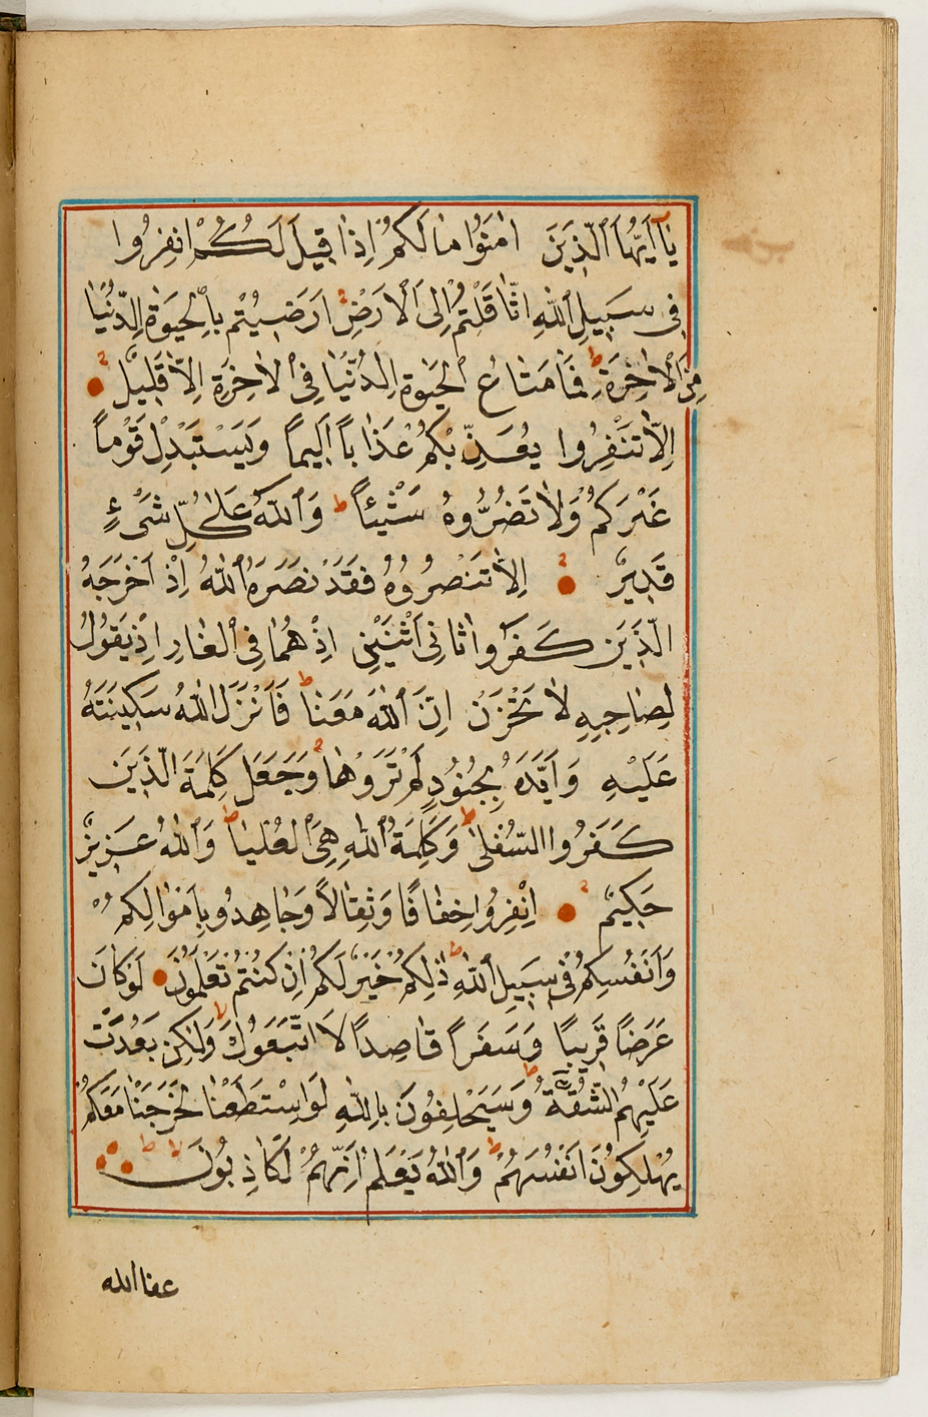 يَا أَيُّهَا الَّذِينَ اٰمَنُوا مَا لَكُمْ اِذَا قِيلَ لَكُمُ انْفِرُوا
فِى سَبِيلِ اللّٰهِ اثَّاقَلْتُمْ اِلَى الْاَرْضِ اَرَضِيتُمْ بِالْحَيٰوةِ الدُّنْيَا
مِنَ الْاٰخِرَةِ ط فَمَا مَتَاعُ الْحَيٰوةِ الدُّنْيَا فِى الْاٰخِرَةِ اِلَّا قَلِيلٌ
اِلَّا تَنْفِرُوا يُعَذِّبْكُمْ عَذَابًا اَلِيمًا وَيَسْتَبْدِلْ قَوْمًا
غَيْرَكُمْ وَلَا تَضُرُّوهُ شَيْئًا ط وَاللّٰهُ عَلٰى كُلِّ شَىْءٍ
قَدِيرٌ اِلَّا تَنْصُرُوهُ فَقَدْ نَصَرَهُ اللّٰهُ اِذْ اَخْرَجَهُ
الَّذِينَ كَفَرُوا ثَانِىَ اثْنَيْنِ اِذْ هُمَا فِى الْغَارِ اِذْ يَقُولُ
لِصَاحِبِهِ لَا تَحْزَنْ اِنَّ اللّٰهَ مَعَنَا ط فَاَنْزَلَ اللّٰهُ سَكِينَتَهُ
عَلَيْهِ وَاَيَّدَهُ بِجُنُودٍ لَمْ تَرَوْهَا وَجَعَلَ كَلِمَةَ الَّذِينَ
كَفَرُوا السُّفْلٰى ط وَكَلِمَةُ اللّٰهِ هِىَ الْعُلْيَا ط وَاللّٰهُ عَزِيزٌ
حَكِيمٌ اِنْفِرُوا خِفَافًا وَثِقَالًا وَجَاهِدُوا بِاَمْوَالِكُمْ
وَاَنْفُسِكُمْ فِى سَبِيلِ اللّٰهِ ط ذٰلِكُمْ خَيْرٌ لَكُمْ اِنْ كُنْتُمْ تَعْلَمُونَ لَوْ كَانَ
عَرَضًا قَرِيبًا وَسَفَرًا قَاصِدًا لَا اتَّبَعُوكَ وَلٰكِنْ بَعُدَتْ
عَلَيْهِمُ الشُّقَّةُ ط وَسَيَحْلِفُونَ بِاللّٰهِ لَوِ اسْتَطَعْنَا لَخَرَجْنَا مَعَكُمْ
يُهْلِكُونَ اَنْفُسَهُمْ ط وَاللّٰهُ يَعْلَمُ اِنَّهُمْ لَكَاذِبُونَ
عفا الله